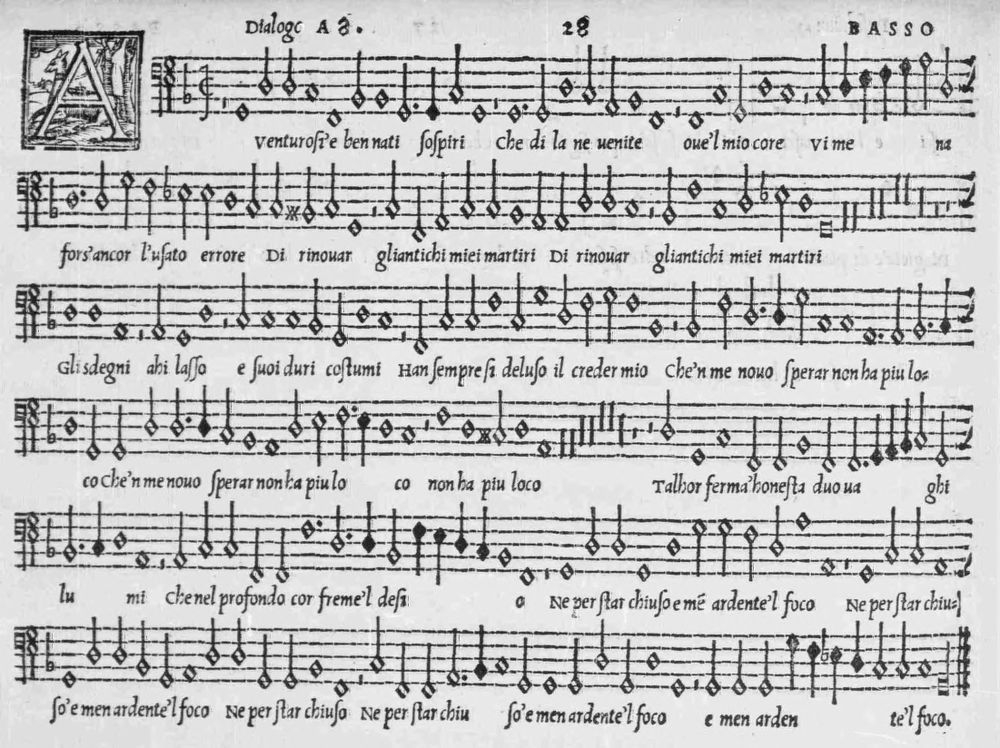 Dialogo A 8. 28 BASSO
A venturosi'e ben nati sospiri Che di la ne uenite oue'l mio core vi me na
fors'ancor l'usato errore Di rinouar gliantichi miei martiri Di rinouar gliantichi miei martiri
Gli sdegni ahi lasso e suoi duri costumi Han sempre si deluso il creder mio Che'n me nouo sperar non ha piu lo=
co Che'n me nouo sperar non ha piu lo co non ha piu loco Talhor ferma'honesta duo ua ghi
lu mi Che nel profondo cor freme'l desi o Ne per star chiuso e mē ardente'l foco Ne per star chiu=
so'e men ardente'l foco Ne per star chiuso Ne per star chiu so'e men ardente'l foco e men arden te'l foco.